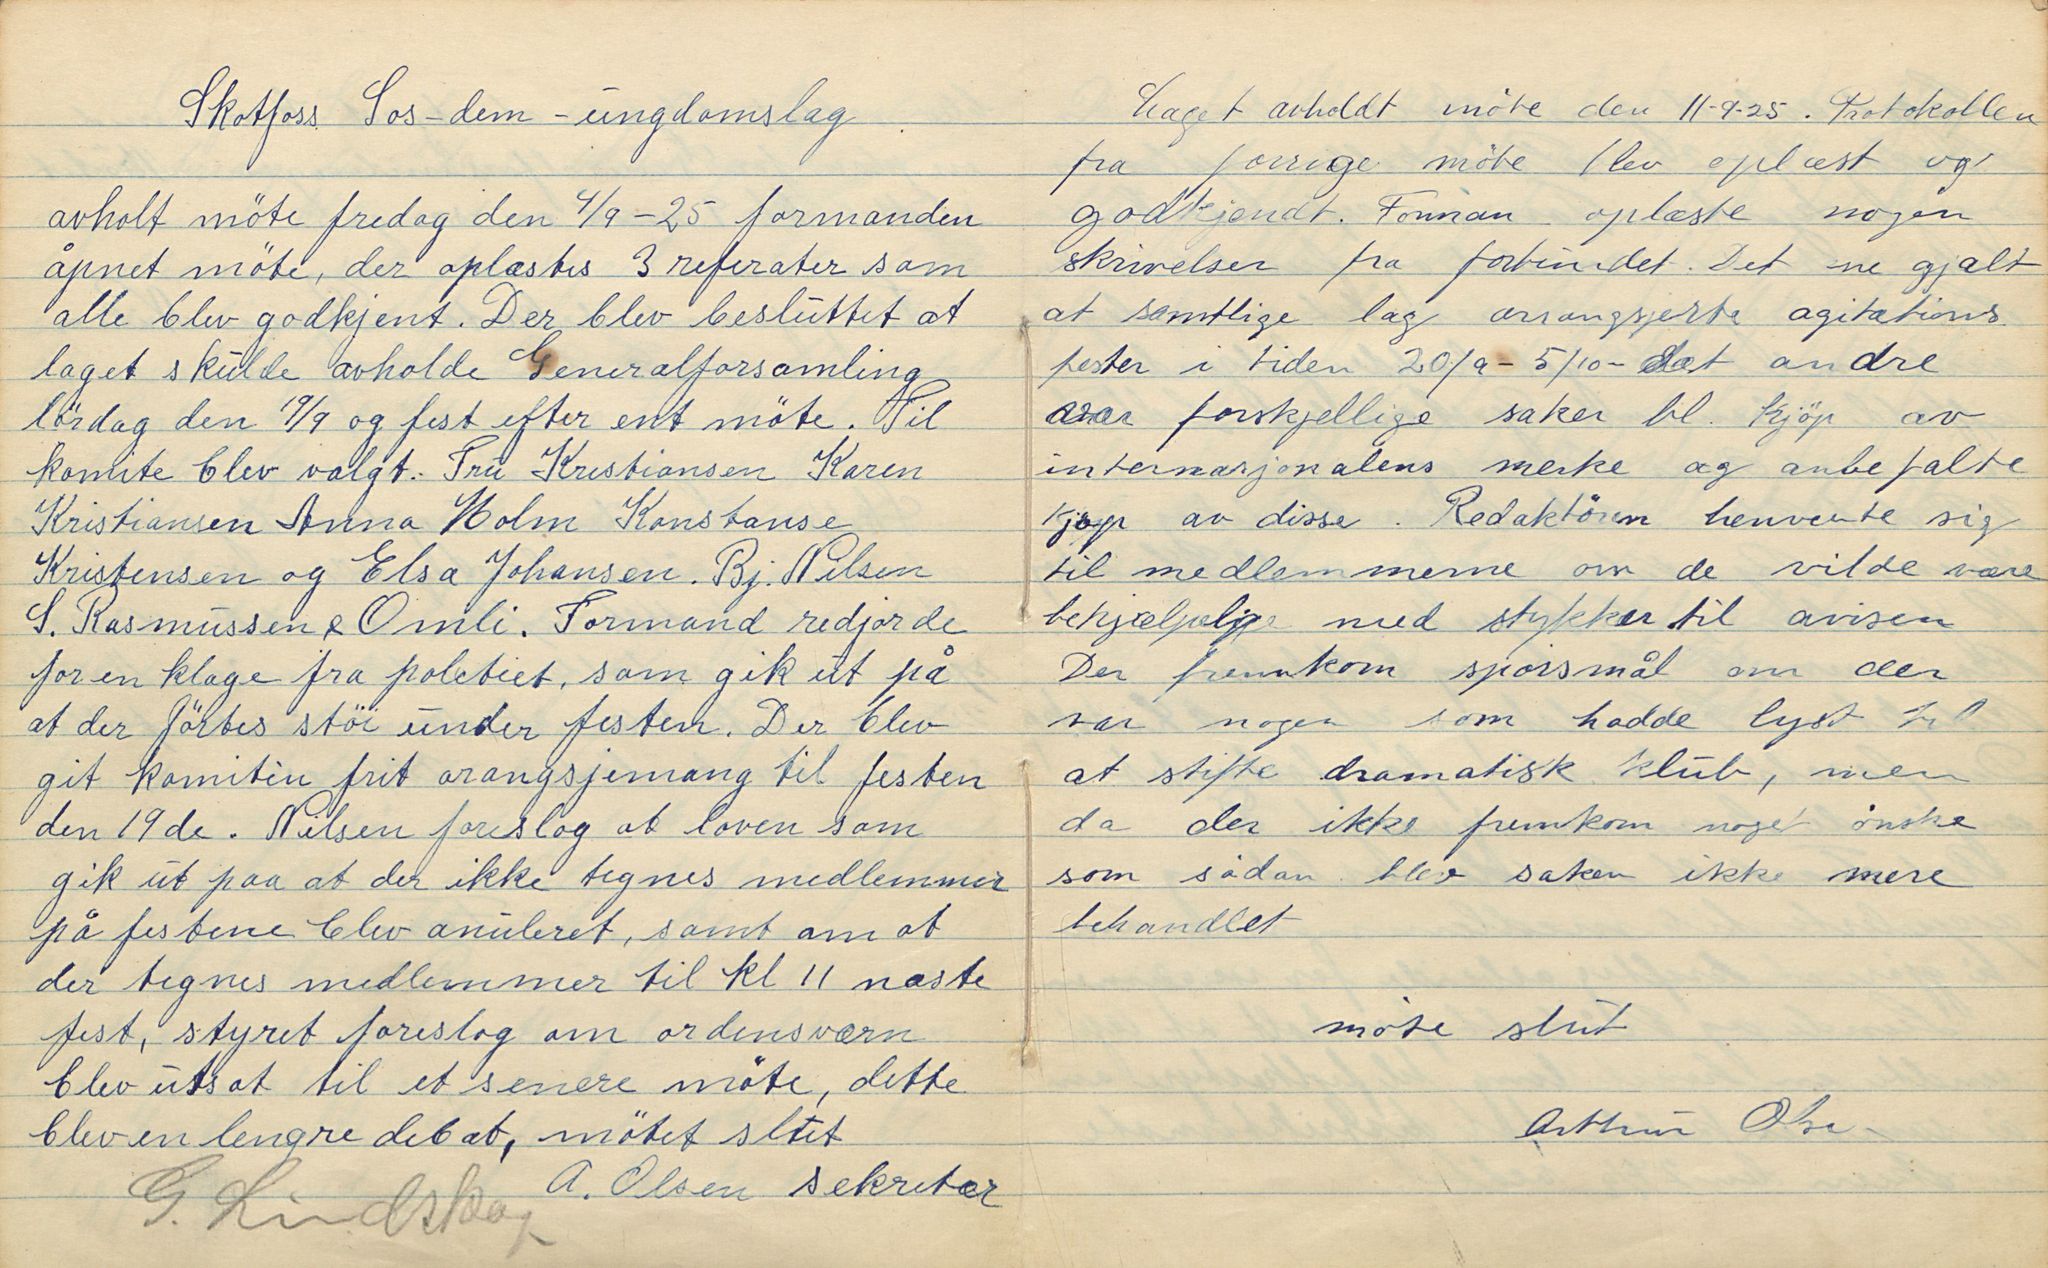 Skotfoss Sos-dem-ungdomslag
avholt möte fredag den 4/9-25 formanden
åpnet möte, der oplæstes 3 referater som
alle blev godkjent. Der blev besluttet at
laget skulde avholde Generalforsamling
lördag den 19/9 og fest efter ent möte. Til
komite blev valgt. Fru Kristiansen Karen
Kristiansen Anna Holm Konstanse
Kristensen og Elsa Johansen. Bj. Nilsen
S. Rasmussen & Omli. Formand redjorde
for en klage fra poletiet, som gik ut på
at der förtes stöi under festen. Der blev
git komitèn frit arangsjemang til festen
den 19 de. Nilsen foreslog at loven som
gik ut paa at der ikke tegnes medlemmer
på festene blev anuleret, samt om at
der tegnes medlemmer til kl 11 næste
fest, styret foreslog om ordensværn
blev utsat til et senere möte, dette
blev en lengre debat, mötet slut
A. Olsen sekretær
G. Lindskog
Laget avholdt möte den 11-9-25. Protokollen
fra forrige möte blev oplæst og
godkjendt. Forman oplæste nogen
skrivelser fra forbundet. Det ene gjalt
at samtlige lag arrangsjerte agitations
fester i tiden 20/9 - 5/10 - det andre
var forskjellige saker bl. kjöp av
internasjonalens merke og anbefalte
kjøp av disse. Redaktören henvente sig
til medlemmerne om de vilde være
behjælpelige med stykker til avisen
Der fremkom spörsmål om der
var nogen som hadde lyst til
at stifte dramatisk klub, men
da der ikke fremkom noget önske
som sådan blev saken ikke mere
behandlet
möte slut
Arthur Olsen